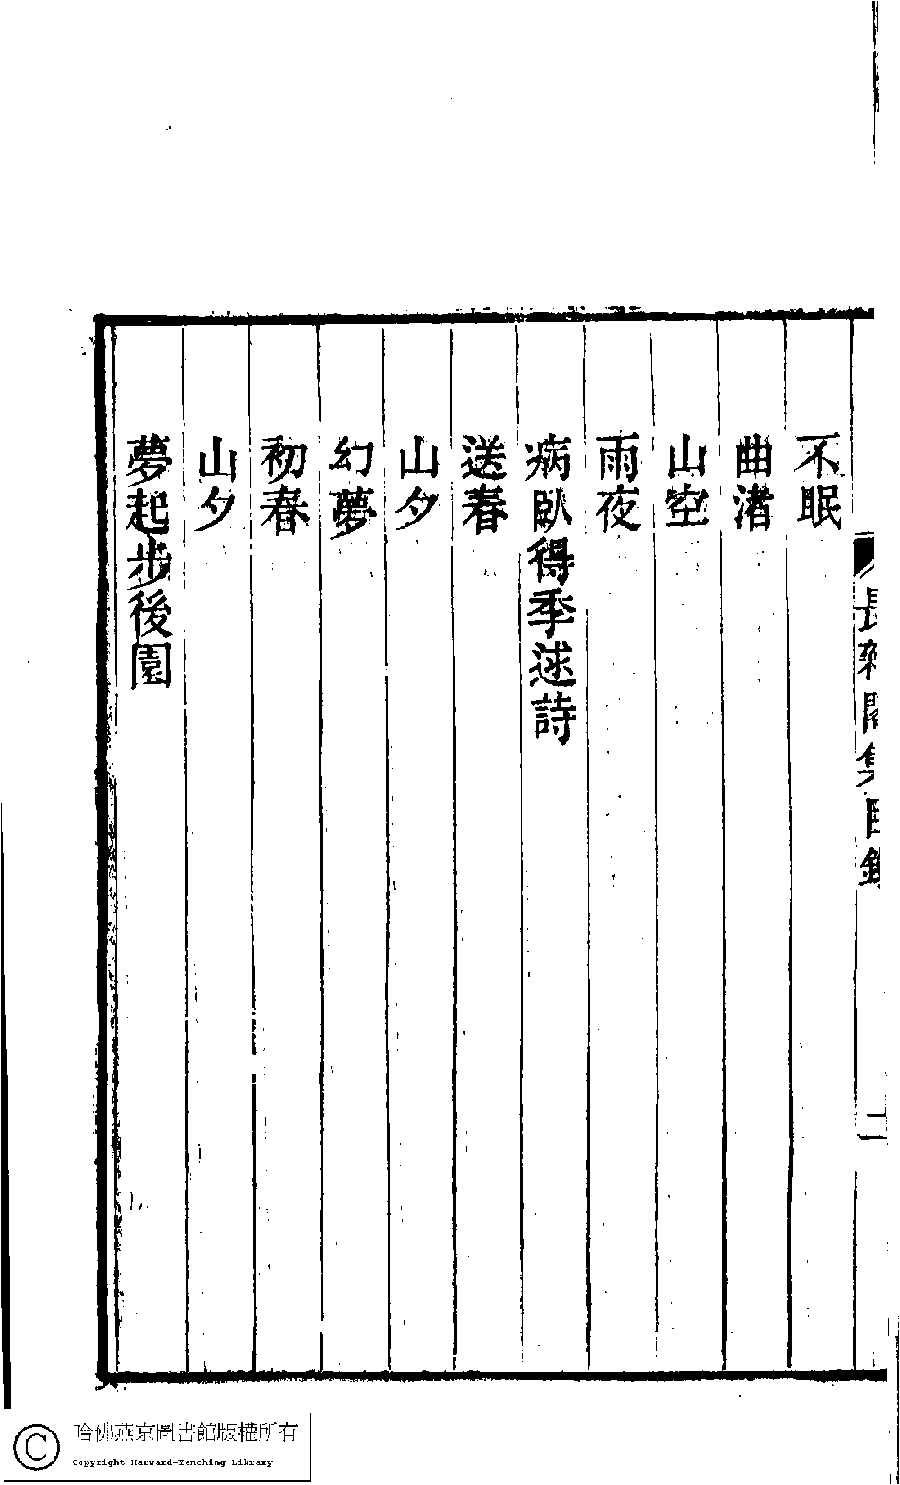 長離閣集目錄
二
不眠
曲渚
山空
雨夜
病臥得季逑詩
送春
山夕
幻夢
初春
山夕
夢起步後園
哈佛燕京圖書館版權所有
Copyright Harvard-Yenching Library